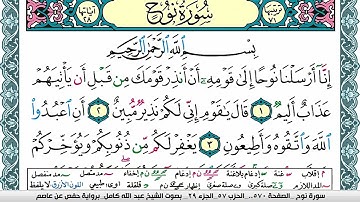 سُورَةُ نُوحٍ
بِسْمِ ٱللَّهِ ٱلرَّحْمَٰنِ ٱلرَّحِيمِ
إِنَّآ أَرْسَلْنَا نُوحًا إِلَىٰ قَوْمِهِۦٓ أَنْ أَنذِرْ قَوْمَكَ مِن قَبْلِ أَن يَأْتِيَهُمْ
عَذَابٌ أَلِيمٌ ١ قَالَ يَٰقَوْمِ إِنِّى لَكُمْ نَذِيرٌ مُّبِينٌ ٢ أَنِ ٱعْبُدُوا۟
ٱللَّهَ وَٱتَّقُوهُ وَأَطِيعُونِ ٣ يَغْفِرْ لَكُم مِّن ذُنُوبِكُمْ وَيُؤَخِّرْكُمْ
سورة نوح - الصفحة ٥٧٠ ... الحزب ٥٧ الجزء ٢٩ بصوت الشيخ عبد الله كامل برواية حفص عن عاصم